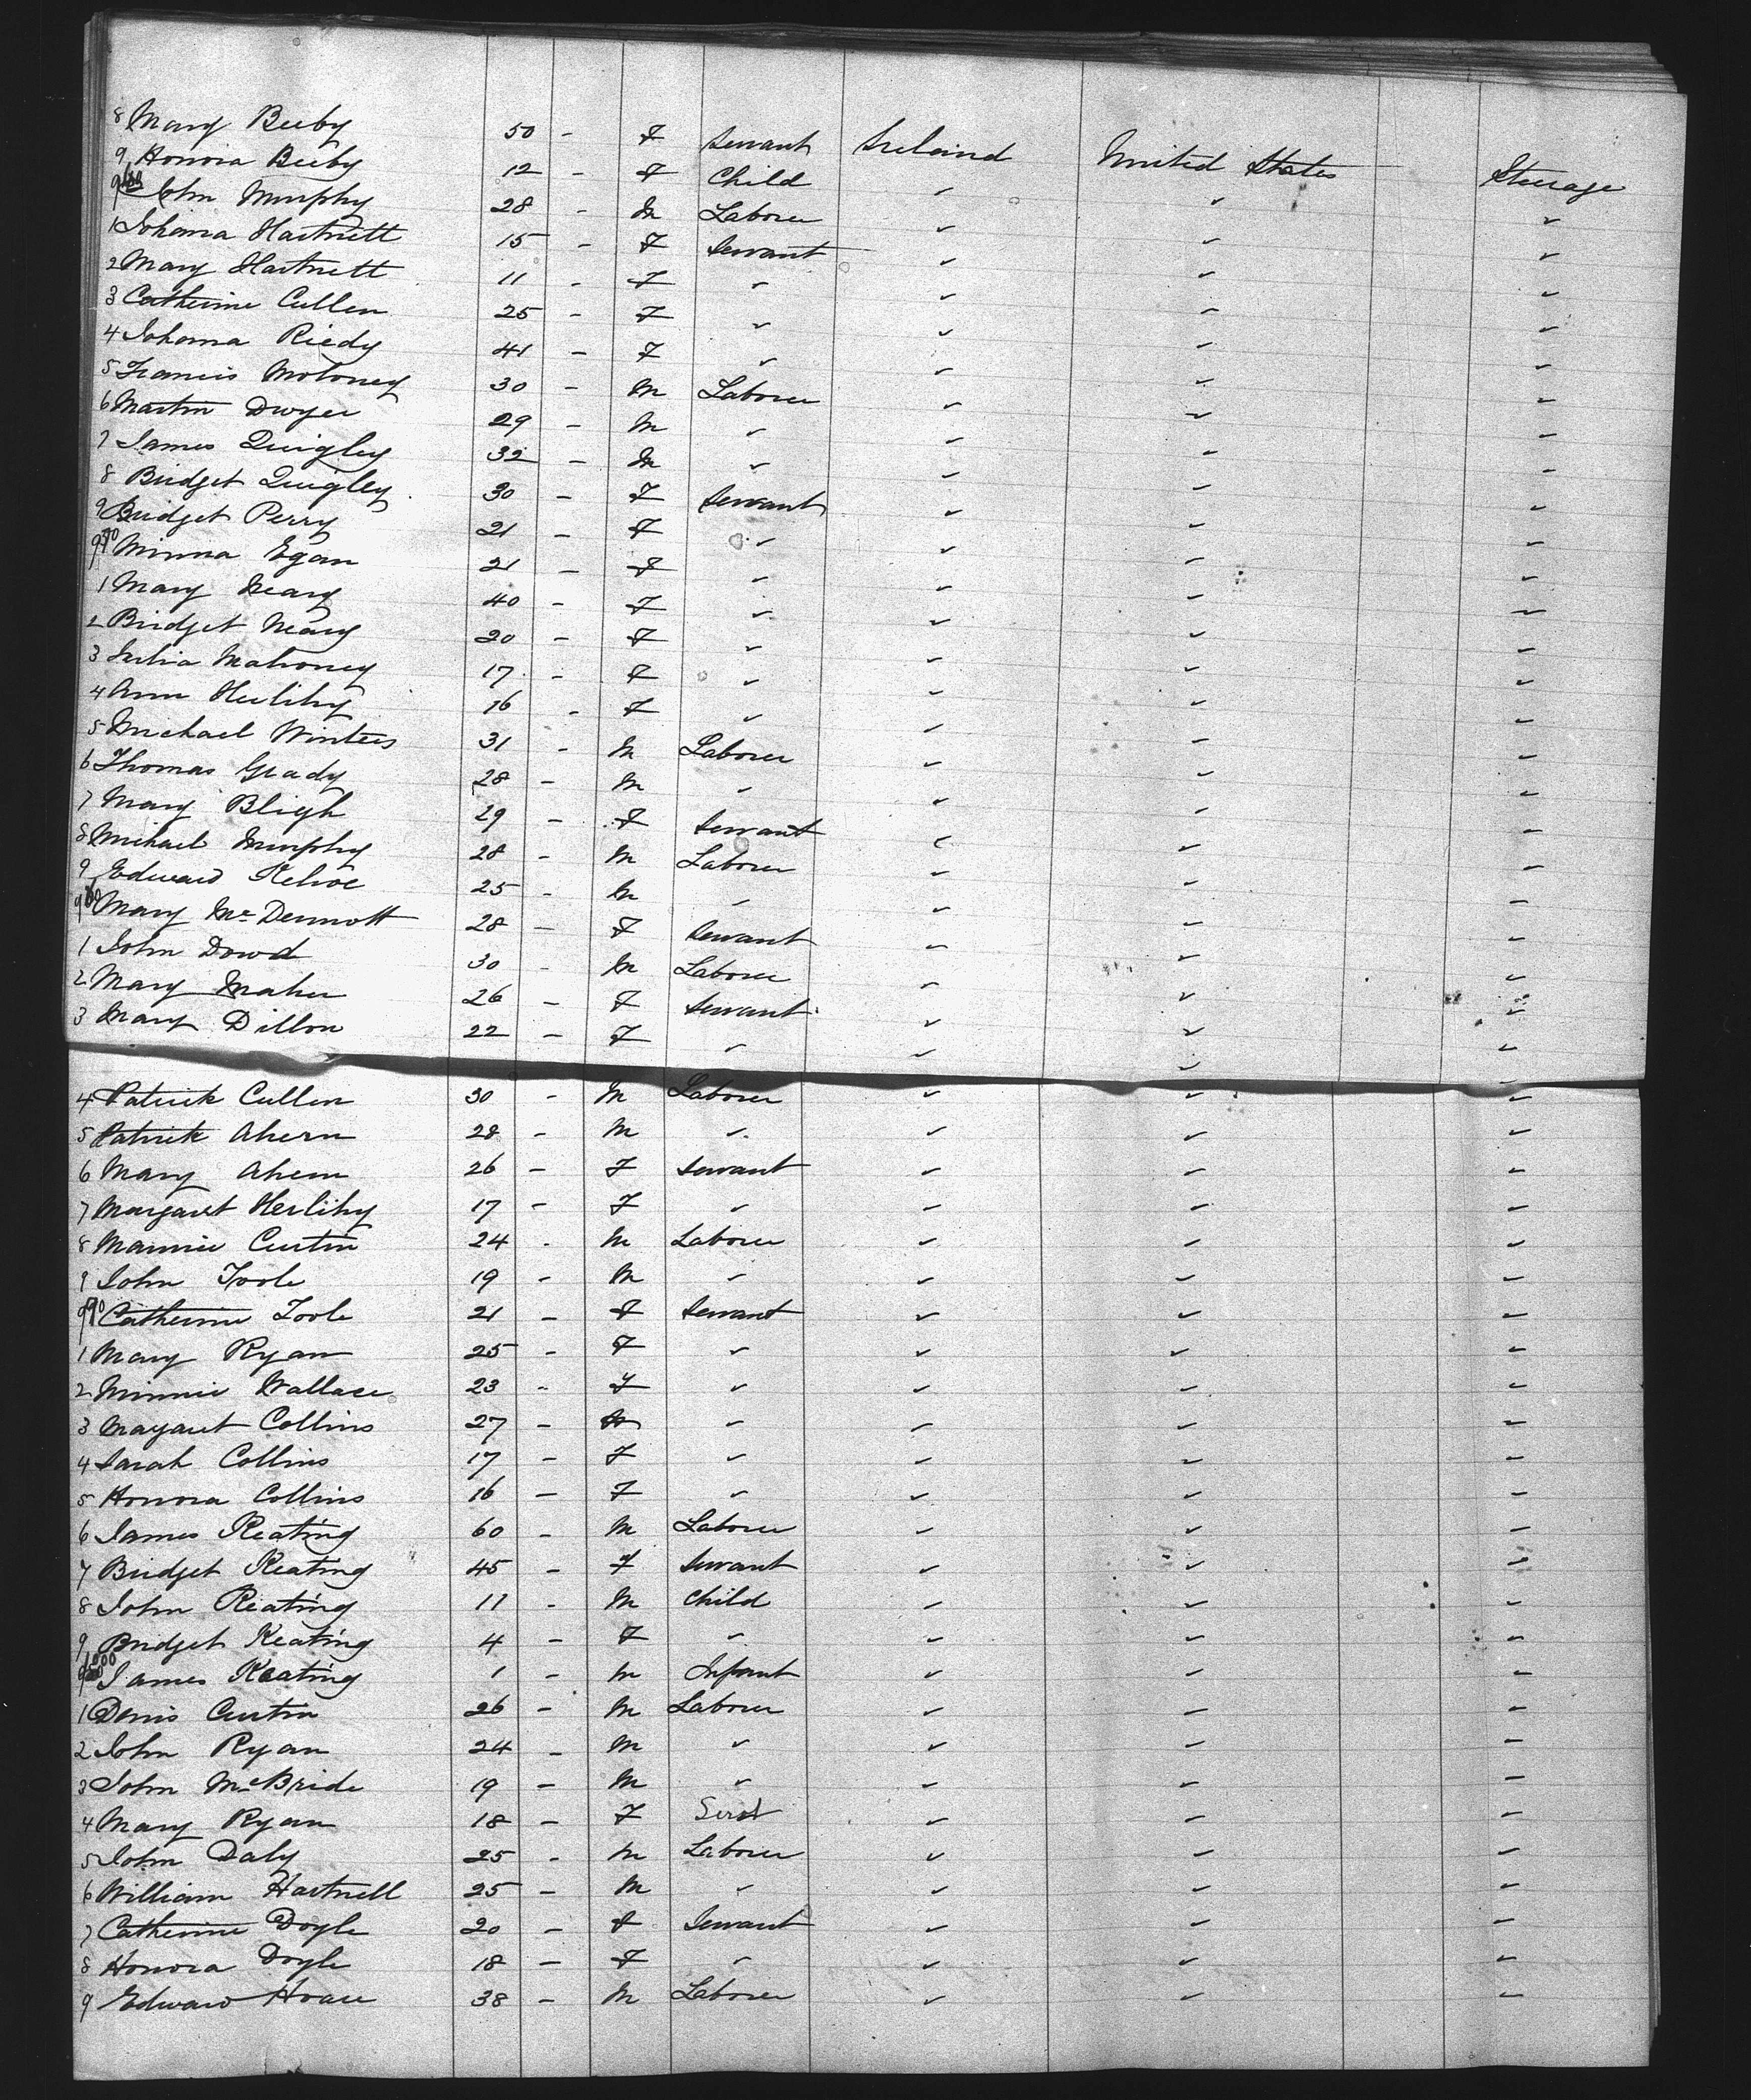 8 Mary Beeby 50 - F Servant Ireland United States Steerage
9 Honora Beeby 12 - F Child ✓ ✓ ✓
John Murphy 28 - M Laborer ✓ ✓ ✓
1 Johana Hartnett 15 - F Servant ✓ ✓ ✓
2 Mary Hartnett 11 - F ✓ ✓ ✓ ✓
3 Catherine Cullen 25 - F ✓ ✓ ✓ ✓
4 Johanna Riedy 41 - F ✓ ✓ ✓ ✓
5 Francis Moloney 30 - M Laborer ✓ ✓ ✓
6 Martin Dwyer 29 - M ✓ ✓ ✓ ✓
7 James Quigley 32 - M ✓ ✓ ✓ ✓
8 Bridget Quigley 30 - F Servant ✓ ✓ ✓
9 Bridget Perry 21 - F ✓ ✓ ✓ ✓
970 Minna Egan 21 - F ✓ ✓ ✓ ✓
1 Mary Neary 40 - F ✓ ✓ ✓ ✓
2 Bridget Neary 20 - F ✓ ✓ ✓ ✓
3 Julia Mahoney 17 - F ✓ ✓ ✓ ✓
4 Ann Herlihy 16 - F ✓ ✓ ✓ ✓
5 Michael Winters 31 - M Laborer ✓ ✓ ✓
6 Thomas Grady 28 - M ✓ ✓ ✓ ✓
7 Mary Bligh 29 - F Servant ✓ ✓ ✓
8 Michael Murphy 28 - M Laborer ✓ ✓ ✓
9 Edward Kehoe 25 - M ✓ ✓ ✓ ✓
980 Mary McDermott 28 - F Servant ✓ ✓ ✓
1 John Dowd 30 - M Laborer ✓ ✓ ✓
2 Mary Maher 26 - F Servant ✓ ✓ ✓
3 Mary Dillon 22 - F ✓ ✓ ✓ ✓
4 Patrick Cullen 30 - M Laborer ✓ ✓ ✓
5 Patrick Ahern 28 - M ✓ ✓ ✓ ✓
6 Mary Ahern 26 - F Servant ✓ ✓ ✓
7 Margaret Herlihy 17 - F ✓ ✓ ✓ ✓
8 Mannie Curtin 24 - M Laborer ✓ ✓ ✓
9 John Toole 19 - M ✓ ✓ ✓ ✓
990 Catherine Toole 21 - F Servant ✓ ✓ ✓
1 Mary Ryan 25 - F ✓ ✓ ✓ ✓
2 Minnie Wallace 23 - F ✓ ✓ ✓ ✓
3 Margaret Collins 27 - ✓ ✓ ✓ ✓
4 Sarah Collins 17 - F ✓ ✓ ✓ ✓
5 Honora Collins 16 - F ✓ ✓ ✓ ✓
6 James Keating 60 - M Laborer ✓ ✓ ✓
7 Bridget Keating 45 - F Servant ✓ ✓ ✓
8 John Keating 11 - M Child ✓ ✓ ✓
9 Bridget Keating 4 - F ✓ ✓ ✓ ✓
1000 James Keating 1 - M Infant ✓ ✓ ✓
1 Denis Curtin 26 - M Laborer ✓ ✓ ✓
2 John Ryan 24 - M ✓ ✓ ✓ ✓
3 John McBride 19 - M ✓ ✓ ✓ ✓
4 Mary Ryan 18 - F Servt ✓ ✓ ✓
5 John Daly 25 - M Laborer ✓ ✓ ✓
6 William Hartnell 25 - M ✓ ✓ ✓ ✓
7 Catherine Doyle 20 - F Servant ✓ ✓ ✓
8 Honora Doyle 18 - F ✓ ✓ ✓ ✓
9 Edward Hoare 38 - M Laborer ✓ ✓ ✓